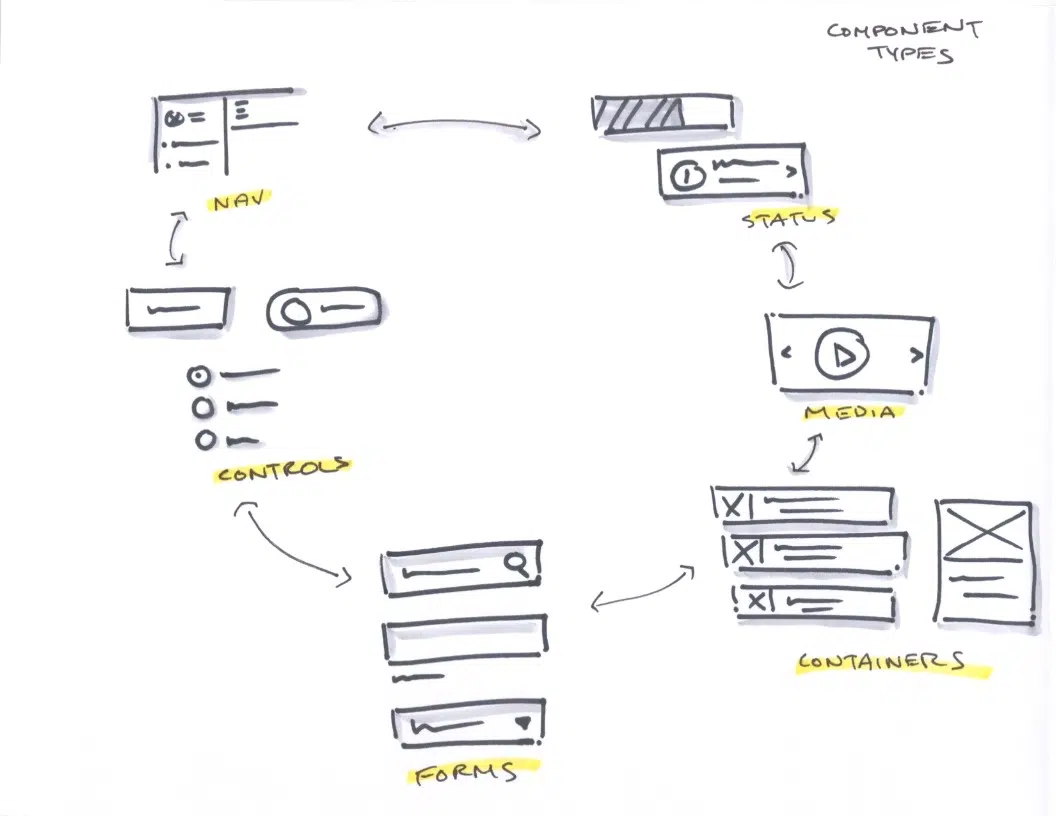 COMPONENT
TYPES
NAV
STATUS
MEDIA
CONTROLS
CONTAINERS
FORMS